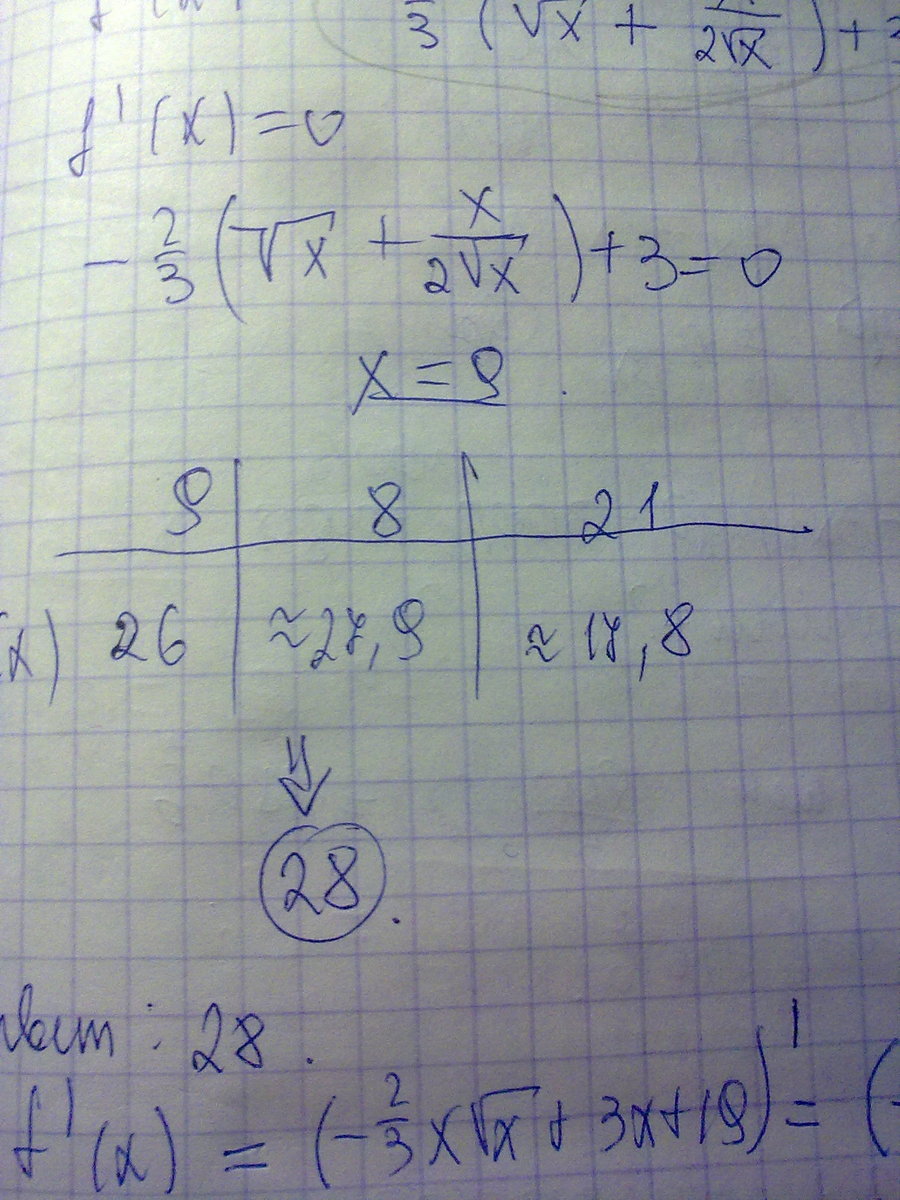 3 (√x + 2√x) +
f'(x)=0
- 2/3 (√x + x/(2√x)) + 3 = 0
x = 9
9 | 8 | 21
x) 26 | ≈27,9 | ≈17,8
⇓
28.
твет: 28.
f'(x) = (-2/3 x√x + 3x+19)' = (-